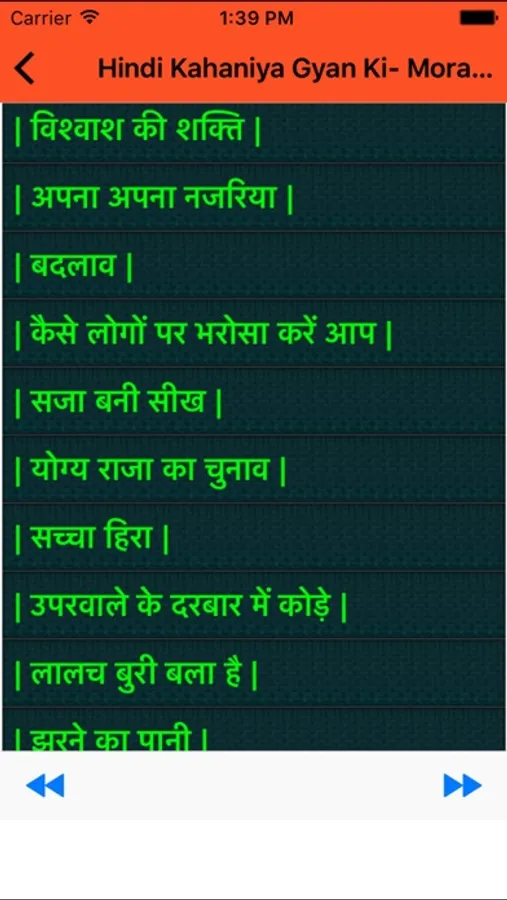 Carrier 1:39 PM
Hindi Kahaniya Gyan Ki- Mora...
| विश्वाश की शक्ति |
| अपना अपना नजरिया |
| बदलाव |
| कैसे लोगों पर भरोसा करें आप |
| सजा बनी सीख |
| योग्य राजा का चुनाव |
| सच्चा हिरा |
| उपरवाले के दरबार में कोड़े |
| लालच बुरी बला है |
| झरने का पानी |